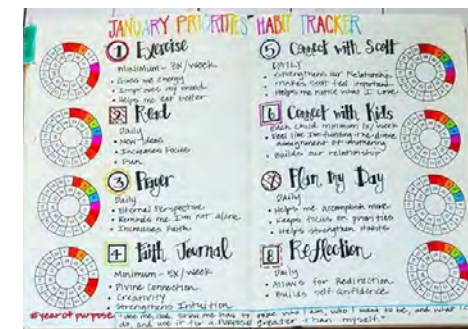 JANUARY PRIORITIES HABIT TRACKER
1 Exercise
Minimum - 3x/week
• Gives me energy
• Improves my mood
• Helps me eat better
2 Read
Daily
• New Ideas
• Increases Focus
• Fun
3 Prayer
Daily
• Eternal Perspective
• Reminds me I'm not alone
• Increases Faith
4 Faith Journal
Minimum - 5x/week
• Divine Connection
• Creativity
• Strengthens Intuition
5 Connect with Scott
DAILY
• Strengthens our Relationship
• Makes Scott feel important
• Helps me notice what I love
6 Connect with Kids
Each child minimum 1x/week
• Feel like I'm fulfilling the divine
assignment of mothering
• Builds our relationship
7 Plan My Day
Daily
• Helps me accomplish more
• Keeps focus on priorities
• Helps strengthen habits
8 Reflection
Daily
• Allows for Redirection
• Builds self-confidence
#year of purpose
who I am, who I want to be, and what I
do, and use it for a purpose greater than myself."